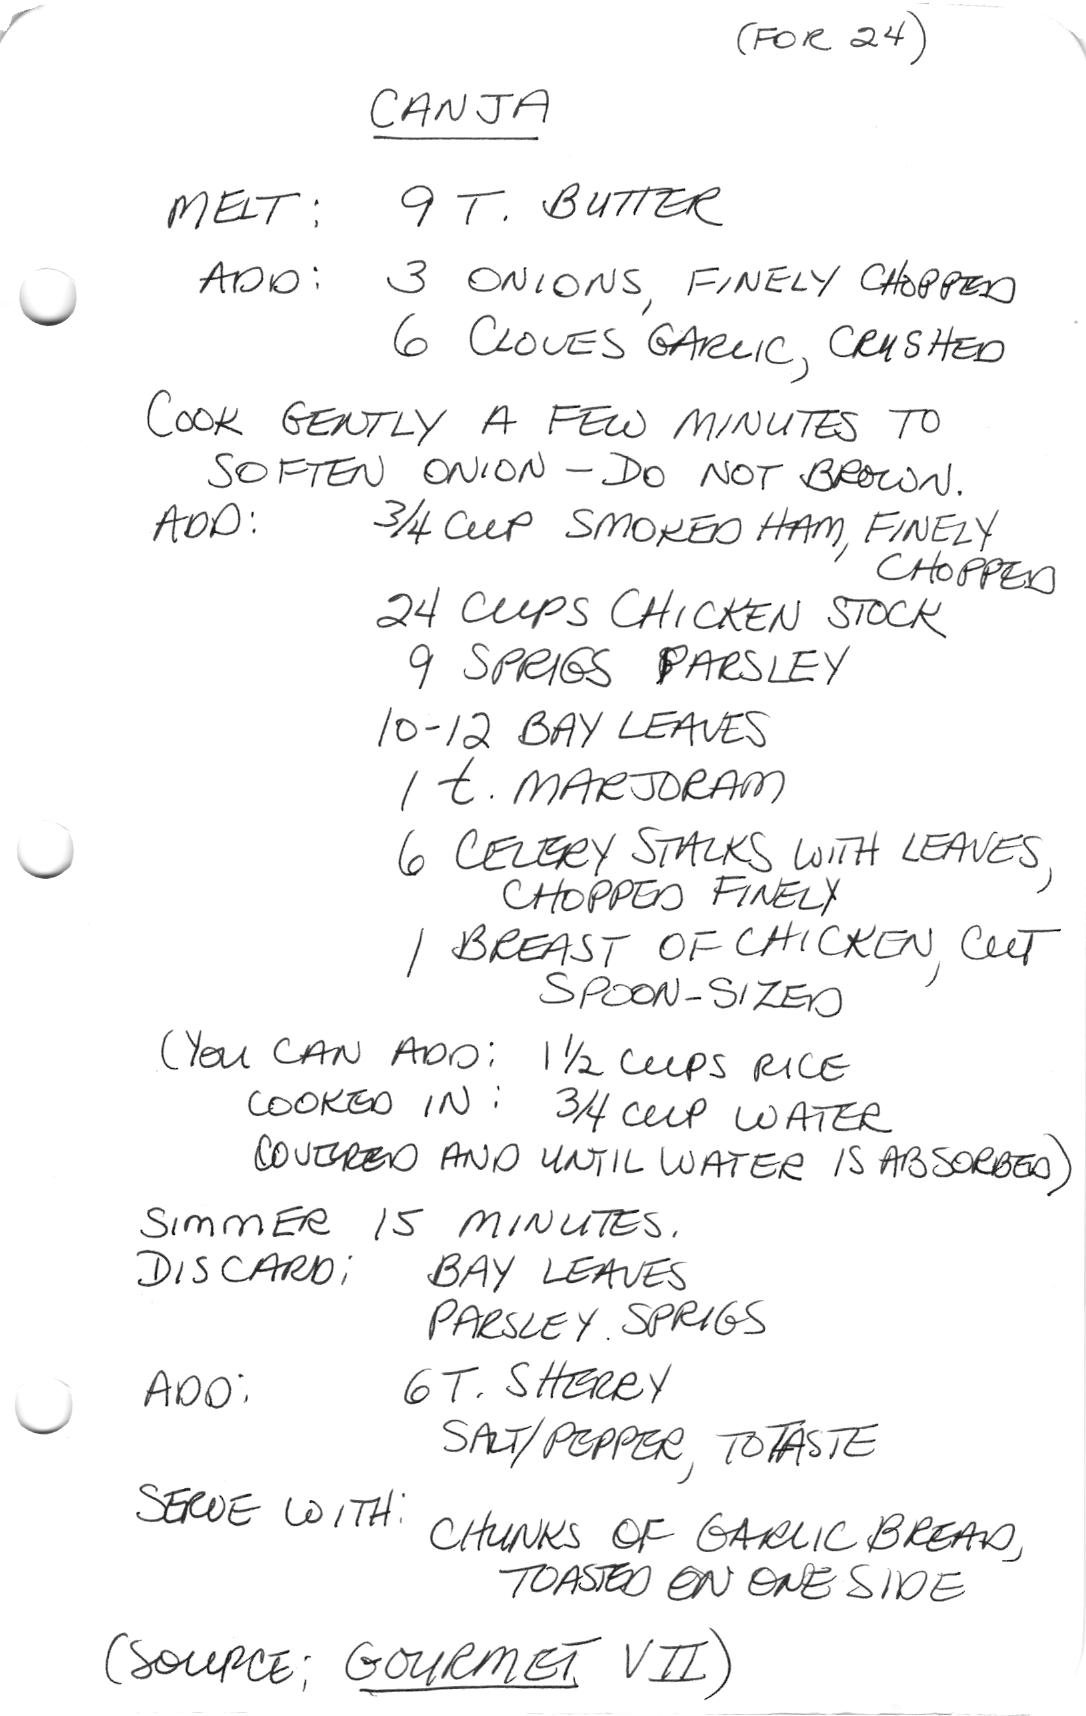 (FOR 24)
CANJA
MELT: 9 T. BUTTER
ADD: 3 ONIONS, FINELY CHOPPED
6 CLOVES GARLIC, CRUSHED
COOK GENTLY A FEW MINUTES TO
SOFTEN ONION – DO NOT BROWN.
ADD: 3/4 CUP SMOKED HAM, FINELY
CHOPPED
24 CUPS CHICKEN STOCK
9 SPRIGS PARSLEY
10-12 BAY LEAVES
1 t. MARJORAM
6 CELERY STALKS WITH LEAVES,
CHOPPED FINELY
1 BREAST OF CHICKEN, CUT
SPOON-SIZED
(YOU CAN ADD: 1 1/2 CUPS RICE
COOKED IN: 3/4 CUP WATER
COVERED AND UNTIL WATER IS ABSORBED)
SIMMER 15 MINUTES.
DISCARD: BAY LEAVES
PARSLEY SPRIGS
ADD: 6 T. SHERRY
SALT/PEPPER, TO TASTE
SERVE WITH: CHUNKS OF GARLIC BREAD,
TOASTED ON ONE SIDE
(SOURCE: GOURMET VII)